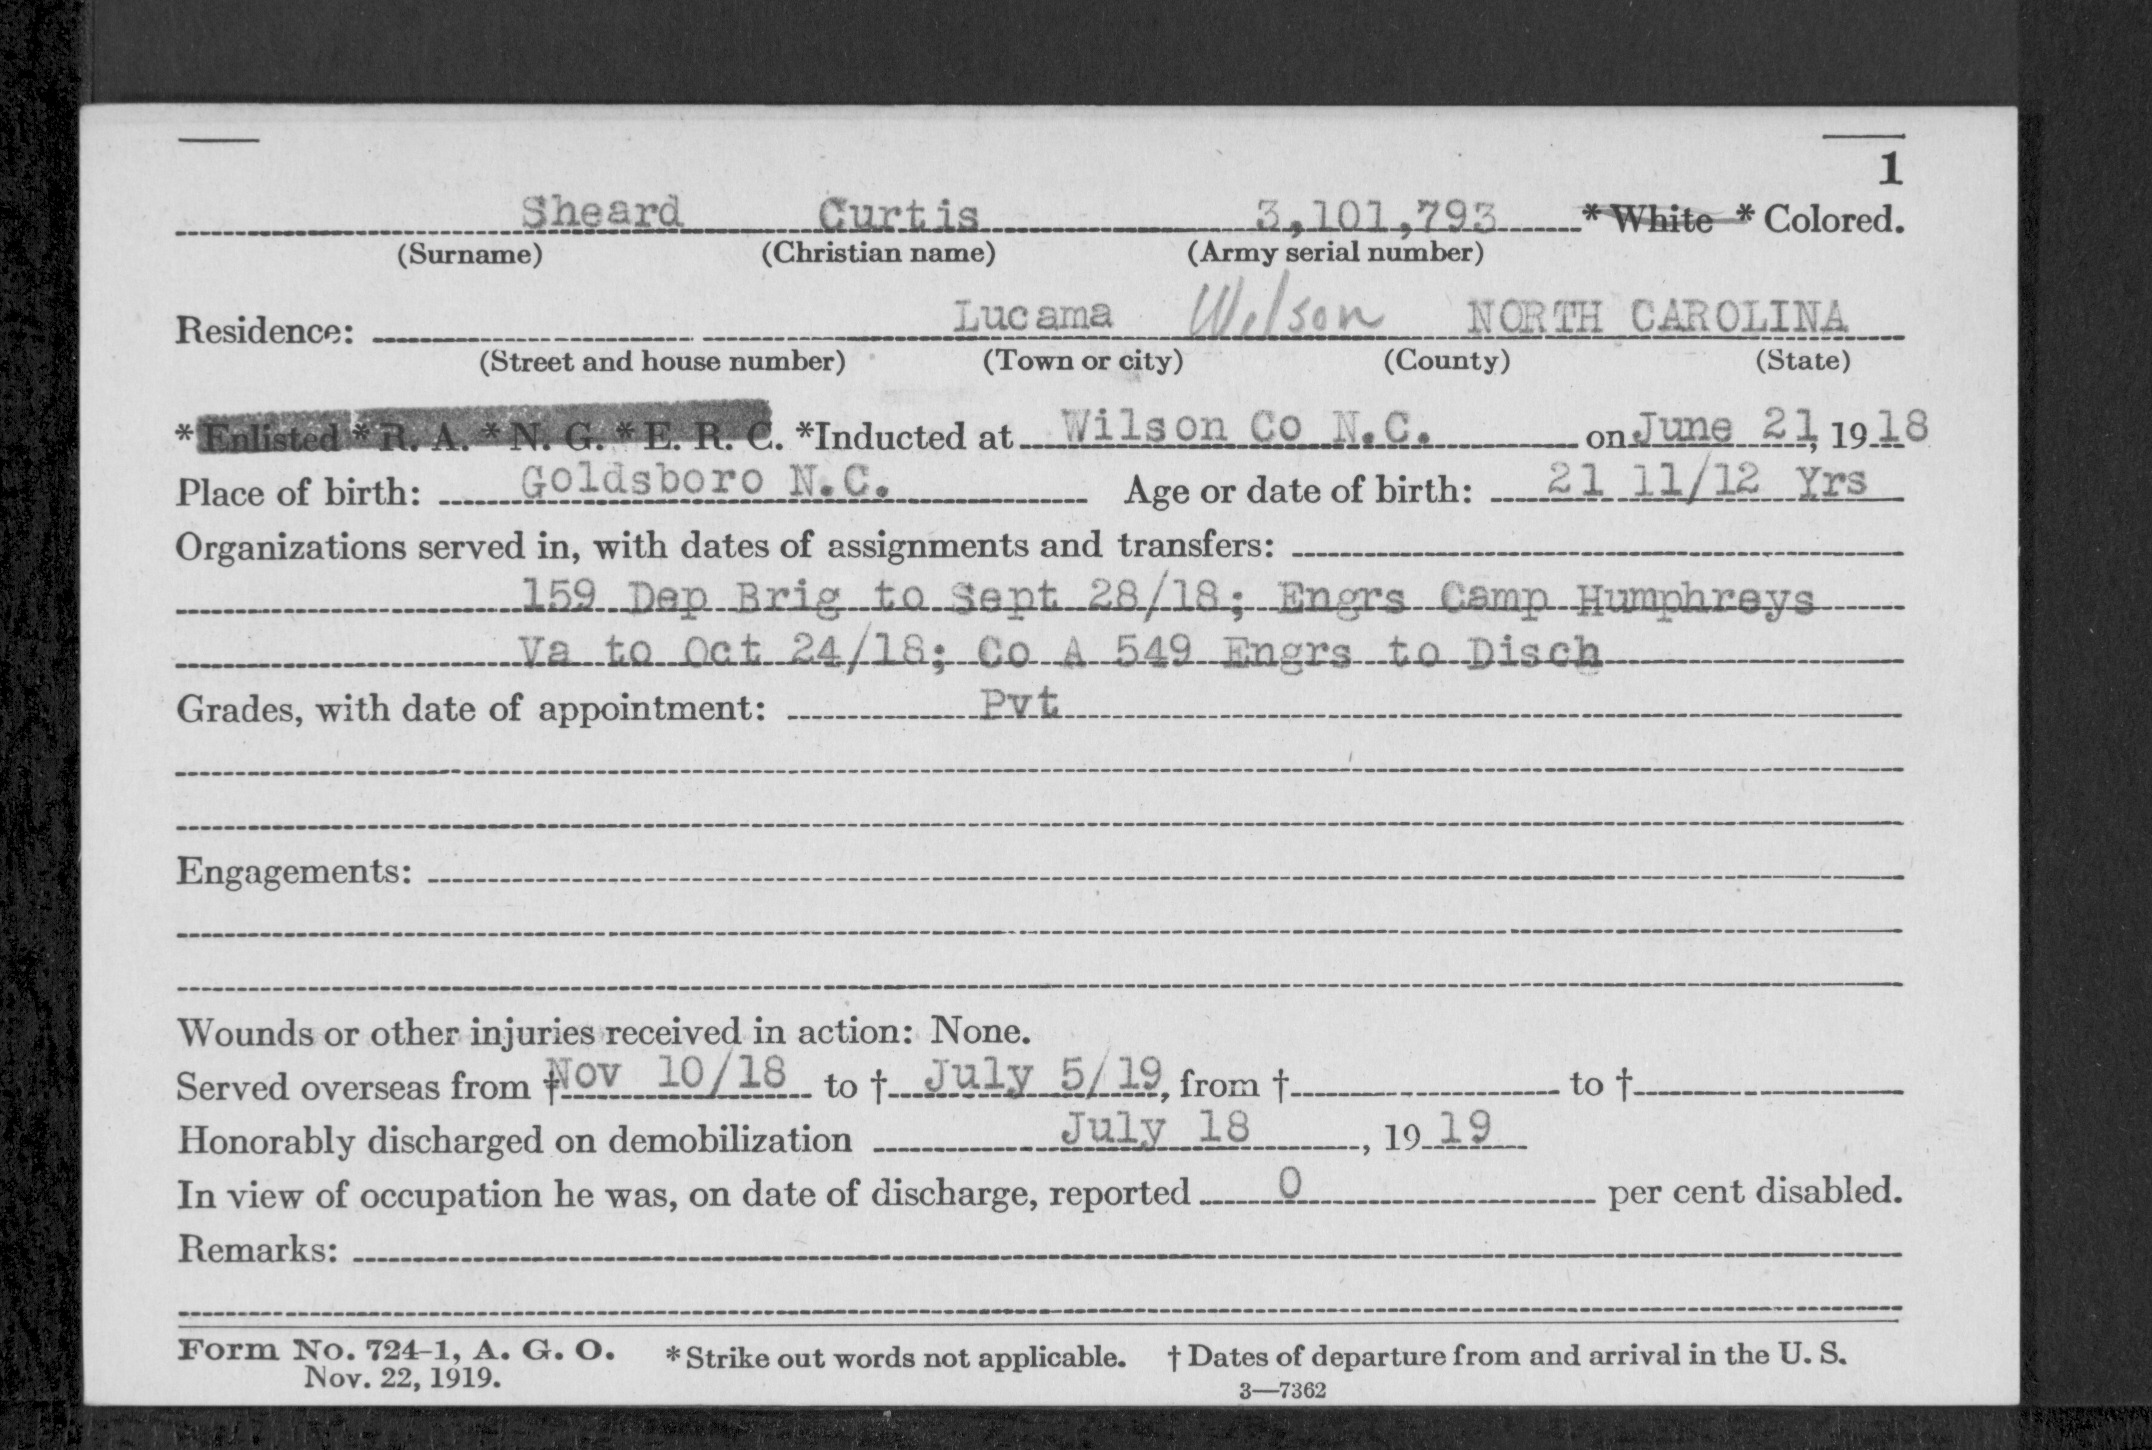 1
Sheard Curtis 3,101,793 * White * Colored.
(Surname) (Christian name) (Army serial number)
Residence: Lucama Wilson NORTH CAROLINA
(Street and house number) (Town or city) (County) (State)
* Enlisted * R. A. * N. G. * E. R. C. *Inducted at Wilson Co N.C. on June 21, 1918
Place of birth: Goldsboro N.C. Age or date of birth: 21 11/12 Yrs
Organizations served in, with dates of assignments and transfers:
159 Dep Brig to Sept 28/18; Engrs Camp Humphreys
Va to Oct 24/18; Co A 549 Engrs to Disch
Grades, with date of appointment: Pvt
Engagements:
Wounds or other injuries received in action: None.
Served overseas from † Nov 10/18 to † July 5/19, from † to †
Honorably discharged on demobilization July 18, 1919
In view of occupation he was, on date of discharge, reported 0 per cent disabled.
Remarks:
Form No. 724-1, A. G. O. * Strike out words not applicable. † Dates of departure from and arrival in the U. S.
Nov. 22, 1919. 3—7362